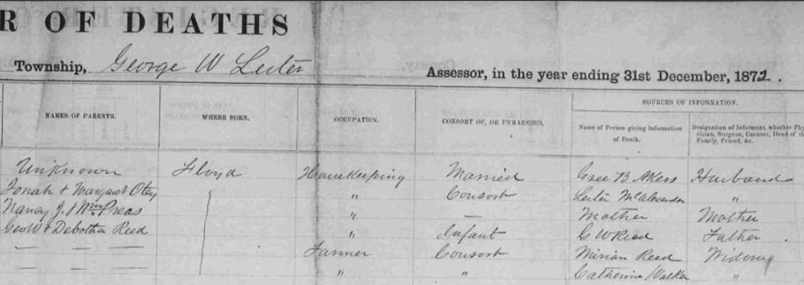 R OF DEATHS
Township, George W Lester Assessor, in the year ending 31st December, 1872.
SOURCES OF INFORMATION.
NAMES OF PARENTS. WHERE BORN. OCCUPATION. CONSORT OF, OR UNMARRIED. Name of Person giving Information of Death. Designation of Informant, whether Phy-sician, Surgeon, Coroner, Head of the Family, Friend, &c.
Unknown Floyd Housekeeping Married B. Akers Husband
Jonah & Margaret Otey " Consort Lester McAlexander "
Nancy J. & Wm Preas " — Mother Mother
Geo W & Debortha Reed " Infant G W Reed Father
— — — Farmer Consort Mirian Reed Widow
— — — " " Catherine Walker "